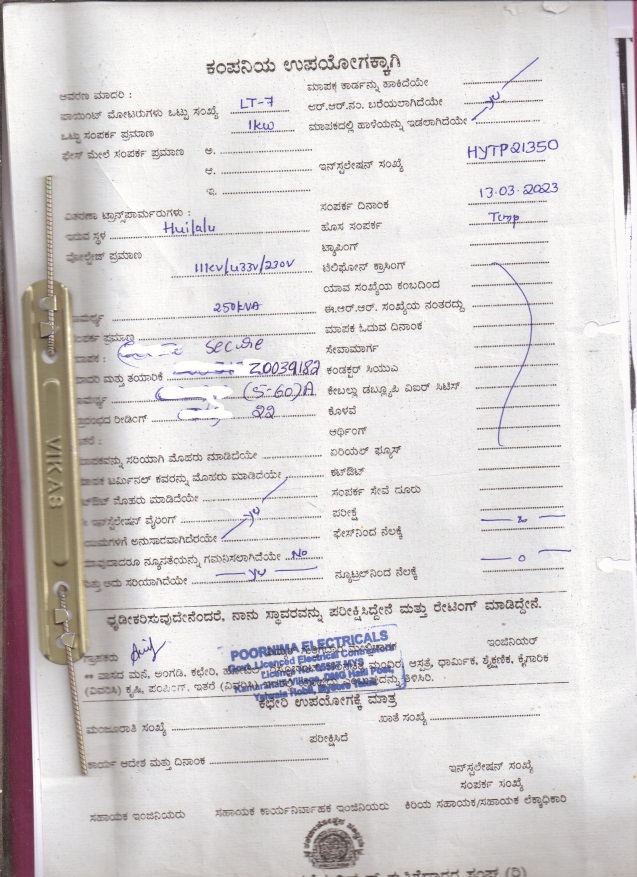 ಕಂಪನಿಯ ಉಪಯೋಗಕ್ಕಾಗಿ
ಆವರಣ ಮಾದರಿ : ಮಾಪಕ ಕಾರ್ಡನ್ನು ಹಾಕಿದೆಯೇ
ಪಾಯಿಂಟ್ ಮೋಟರುಗಳು ಒಟ್ಟು ಸಂಖ್ಯೆ LT-7 ಆರ್.ಆರ್.ನಂ. ಬರೆಯಲಾಗಿದೆಯೇ
ಒಟ್ಟು ಸಂಪರ್ಕ ಪ್ರಮಾಣ 1kw ಮಾಪಕದಲ್ಲಿ ಹಾಳೆಯನ್ನು ಇಡಲಾಗಿದೆಯೇ
ಫೇಸ್ ಮೇಲೆ ಸಂಪರ್ಕ ಪ್ರಮಾಣ ಅ.
ಆ. ಇನ್‌ಸ್ಟಲೇಷನ್ ಸಂಖ್ಯೆ HYTP21350
ಇ.
ಸಂಪರ್ಕ ದಿನಾಂಕ 13.03.2023
ವಿತರಣಾ ಟ್ರಾನ್ಸ್‌ಪಾರ್ಮರುಗಳು :
ಇರುವ ಸ್ಥಳ Huilalu ಹೊಸ ಸಂಪರ್ಕ Temp
ಟ್ಯಾಪಿಂಗ್
ವೋಲ್ಟೇಜ್ ಪ್ರಮಾಣ 11kv/433v/230v ಟೆಲಿಫೋನ್ ಕ್ರಾಸಿಂಗ್
ಯಾವ ಸಂಖ್ಯೆಯ ಕಂಬದಿಂದ
250kVA ಈ.ಆರ್.ಆರ್. ಸಂಖ್ಯೆಯ ನಂತರದ್ದು
ಸಂಪರ್ಕ ಪ್ರಮಾಣ ಮಾಪಕ ಓದುವ ದಿನಾಂಕ
ಮಾಪಕ : Secure ಸೇವಾಮಾರ್ಗ
ಮಾದರಿ ಮತ್ತು ತಯಾರಿಕೆ Z0039182 ಕಂಡಕ್ಟರ್ ಸಿಯುಎ
(5-60)A ಕೇಬಲ್ಲು ಡಬ್ಲ್ಯೂಪಿ ವಿಐಆರ್ ಸಿಟಿಸ್
ಪ್ರಾರಂಭದ ರೀಡಿಂಗ್ 22 ಕೊಳವೆ
ಆರ್ಥಿಂಗ್
ಮಾಪಕವನ್ನು ಸರಿಯಾಗಿ ಮೊಹರು ಮಾಡಿದೆಯೇ ಏರಿಯಲ್ ಫ್ಯೂಸ್
ಮಾಪಕ ಟರ್ಮಿನಲ್ ಕವರನ್ನು ಮೊಹರು ಮಾಡಿದೆಯೇ ಕಟ್‌ಔಟ್
ಕಟ್‌ಔಟ್ ಮೊಹರು ಮಾಡಿದೆಯೇ ಸಂಪರ್ಕ ಸೇವೆ ದೂರು
ಇನ್‌ಸ್ಟಲೇಷನ್ ವೈರಿಂಗ್ ಪರೀಕ್ಷೆ
ನಿಯಮಗಳಿಗೆ ಅನುಸಾರವಾಗಿದೆಯೇ ಫೇಸ್‌ನಿಂದ ನೆಲಕ್ಕೆ
ಯಾವುದಾದರೂ ನ್ಯೂನತೆಯನ್ನು ಗಮನಿಸಲಾಗಿದೆಯೇ No
ಮತ್ತು ಅದು ಸರಿಯಾಗಿದೆಯೇ ನ್ಯೂಟ್ರಲ್‌ನಿಂದ ನೆಲಕ್ಕೆ 0
ಧೃಡೀಕರಿಸುವುದೇನೆಂದರೆ, ನಾನು ಸ್ಥಾವರವನ್ನು ಪರೀಕ್ಷಿಸಿದ್ದೇನೆ ಮತ್ತು ರೇಟಿಂಗ್ ಮಾಡಿದ್ದೇನೆ.
ಗ್ರಾಹಕರು ಇಂಜಿನಿಯರ್
POORNIMA ELECTRICALS
Govt. Licenced Electrical Contractors
** ವಾಸದ ಮನೆ, ಅಂಗಡಿ, ಕಛೇರಿ, ಮಂಧಿರ, ಆಸ್ಪತ್ರೆ, ಧಾರ್ಮಿಕ, ಶೈಕ್ಷಣಿಕ, ಕೈಗಾರಿಕ
(ವಿವರಿಸಿ) ಕೃಷಿ, ಪಂಪಿಂಗ್, ಇತರೆ ತಿಳಿಸಿರಿ.
ಕಛೇರಿ ಉಪಯೋಗಕ್ಕೆ ಮಾತ್ರ
ಮಂಜೂರಾತಿ ಸಂಖ್ಯೆ ಖಾತೆ ಸಂಖ್ಯೆ
ಪರೀಕ್ಷಿಸಿದೆ
ಕಾರ್ಯ ಆದೇಶ ಮತ್ತು ದಿನಾಂಕ
ಇನ್‌ಸ್ಟಲೇಷನ್ ಸಂಖ್ಯೆ
ಸಂಪರ್ಕ ಸಂಖ್ಯೆ
ಸಹಾಯಕ ಇಂಜಿನಿಯರು ಸಹಾಯಕ ಕಾರ್ಯನಿರ್ವಾಹಕ ಇಂಜಿನಿಯರು ಕಿರಿಯ ಸಹಾಯಕ/ಸಹಾಯಕ ಲೆಕ್ಕಾಧಿಕಾರಿ
VIKAS